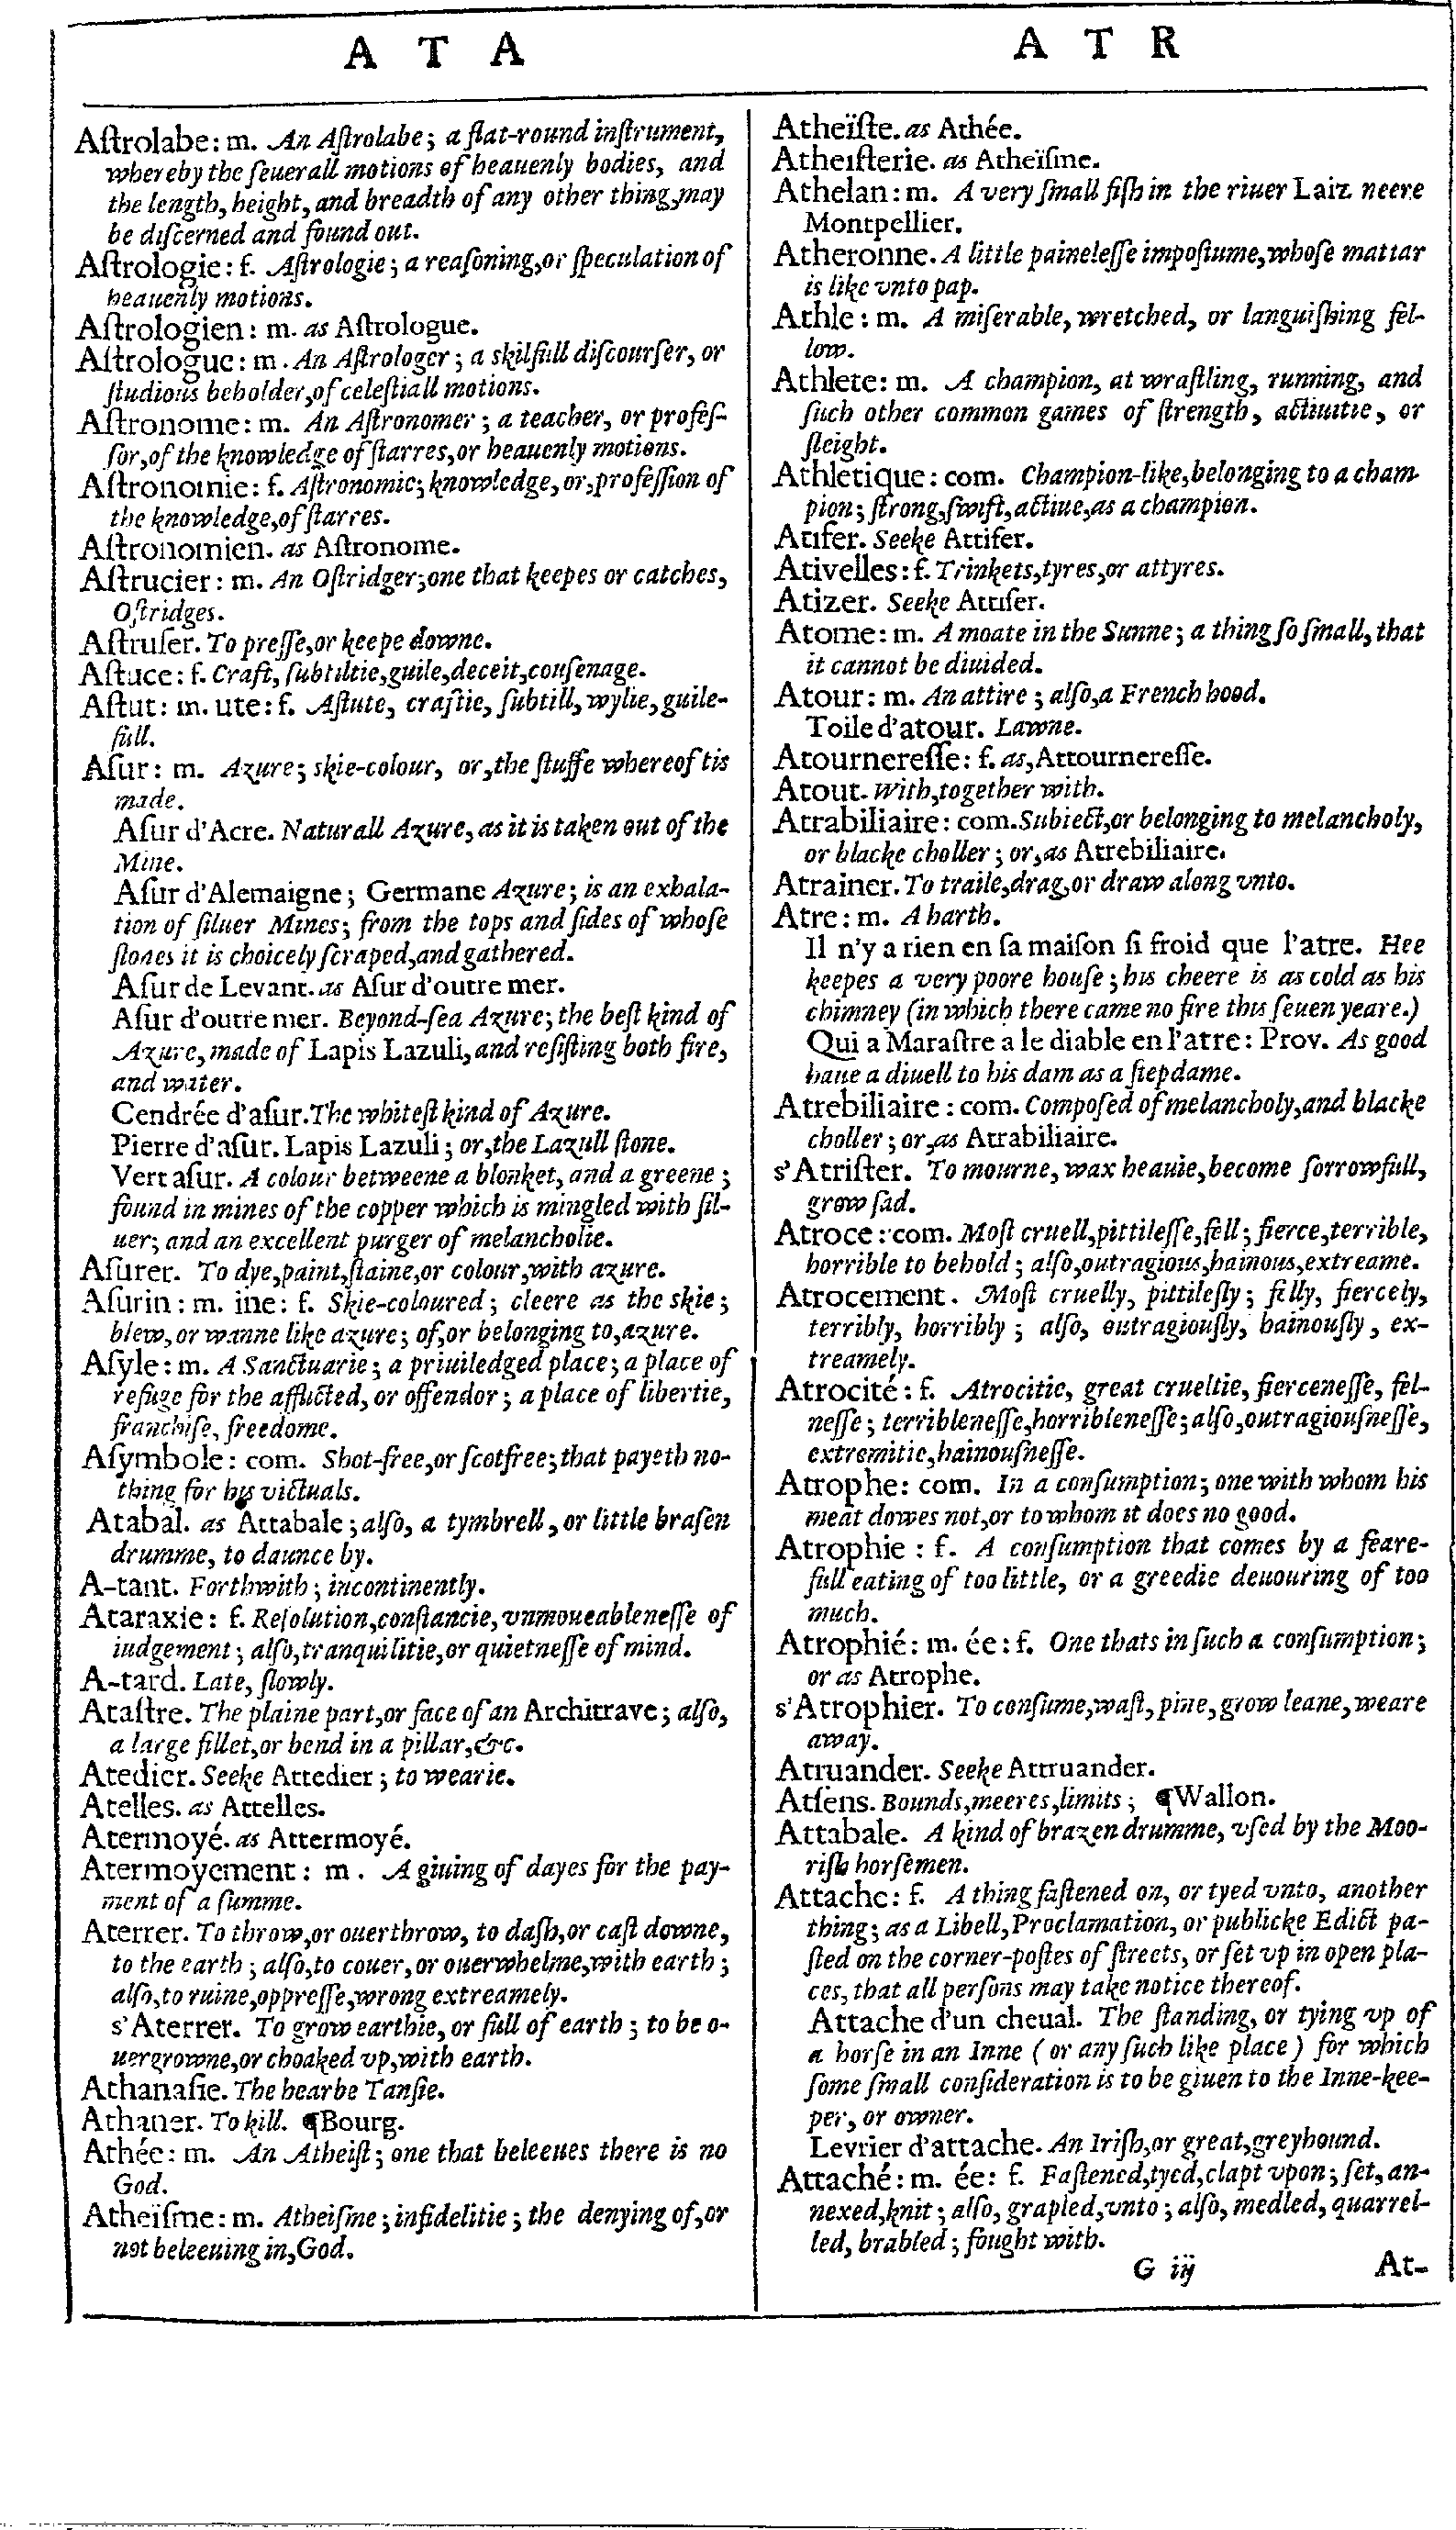 A T A
Aſtrolabe: m. An Aſtrolabe; a flat-round inſtrument,
whereby the ſeuerall motions of heauenly bodies, and
the length, height, and breadth of any other thing, may
be diſcerned and found out.
Aſtrologie: f. Aſtrologie; a reaſoning, or ſpeculation of
heauenly motions.
Aſtrologien: m. as Aſtrologue.
Aſtrologue: m. An Aſtrologer; a skilfull diſcourſer, or
ſtudious beholder, of celeſtiall motions.
Aſtronome: m. An Aſtronomer; a teacher, or profeſ-
ſor, of the knowledge of ſtarres, or heauenly motions.
Aſtronomie: f. Aſtronomie; knowledge, or, profeſſion of
the knowledge, of ſtarres.
Aſtronomien. as Aſtronome.
Aſtrucier: m. An Oſtridger; one that keepes or catches,
Oſtridges.
Aſtruſer. To preſſe, or keepe downe.
Aſtuce: f. Craft, ſubtiltie, guile, deceit, couſenage.
Aſtut: m. ute: f. Aſtute, craftie, ſubtill, wylie, guile-
full.
Aſur: m. Azure; skie-colour, or, the ſtuffe whereof tis
made.
Aſur d'Acre. Naturall Azure, as it is taken out of the
Mine.
Aſur d'Alemaigne; Germane Azure; is an exhala-
tion of ſiluer Mines; from the tops and ſides of whoſe
ſtones it is choicely ſcraped, and gathered.
Aſur de Levant. as Aſur d'outre mer.
Aſur d'outre mer. Beyond-ſea Azure; the beſt kind of
Azure, made of Lapis Lazuli, and reſiſting both fire,
and water.
Cendrée d'aſur. The whiteſt kind of Azure.
Pierre d'aſur. Lapis Lazuli; or, the Lazull ſtone.
Vert aſur. A colour betweene a blonket, and a greene;
found in mines of the copper which is mingled with ſil-
uer; and an excellent purger of melancholie.
Aſurer. To dye, paint, ſtaine, or colour, with azure.
Aſurin: m. ine: f. Skie-coloured; cleere as the skie;
blew, or wanne like azure; of, or belonging to, azure.
Aſyle: m. A Sanctuarie; a priuiledged place; a place of
refuge for the afflicted, or offendor; a place of libertie,
franchiſe, freedome.
Aſymbole: com. Shot-free, or ſcotfree; that payeth no-
thing for his victuals.
Atabal. as Attabale; alſo, a tymbrell, or little braſen
drumme, to daunce by.
A-tant. Forthwith; incontinently.
Ataraxie: f. Reſolution, conſtancie, vnmoueableneſſe of
iudgement; alſo, tranquilitie, or quietneſſe of mind.
A-tard. Late, ſlowly.
Ataſtre. The plaine part, or face of an Architrave; alſo,
a large fillet, or bend in a pillar, &c.
Atedier. Seeke Attedier; to wearie.
Atelles. as Attelles.
Atermoyé. as Attermoyé.
Atermoyement: m. A giuing of dayes for the pay-
ment of a ſumme.
Aterrer. To throw, or ouerthrow, to daſh, or caſt downe,
to the earth; alſo, to couer, or ouerwhelme, with earth;
alſo, to ruine, oppreſſe, wrong extreamely.
s'Aterrer. To grow earthie, or full of earth; to be o-
uergrowne, or choaked vp, with earth.
Athanaſie. The hearbe Tanſie.
Athaner. To kill. ¶Bourg.
Athée: m. An Atheiſt; one that beleeues there is no
God.
Atheïſme: m. Atheiſme; infidelitie; the denying of, or
not beleeuing in, God.
A T R
Atheïſte. as Athée.
Atheiſterie. as Atheïſme.
Athelan: m. A very ſmall fiſh in the riuer Laiz neere
Montpellier.
Atheronne. A little paineleſſe impoſtume, whoſe mattar
is like vnto pap.
Athle: m. A miſerable, wretched, or languiſhing fel-
low.
Athlete: m. A champion, at wraſtling, running, and
ſuch other common games of ſtrength, actiuitie, or
ſleight.
Athletique: com. Champion-like, belonging to a cham-
pion; ſtrong, ſwift, actiue, as a champion.
Atifer. Seeke Attifer.
Ativelles: f. Trinkets, tyres, or attyres.
Atizer. Seeke Attiſer.
Atome: m. A moate in the Sunne; a thing ſo ſmall, that
it cannot be diuided.
Atour: m. An attire; alſo, a French hood.
Toile d'atour. Lawne.
Atournereſſe: f. as, Attournereſſe.
Atout. With, together with.
Atrabiliaire: com. Subiect, or belonging to melancholy,
or blacke choller; or, as Atrebiliaire.
Atrainer. To traile, drag, or draw along vnto.
Atre: m. A harth.
Il n'y a rien en ſa maiſon ſi froid que l'atre. Hee
keepes a very poore houſe; his cheere is as cold as his
chimney (in which there came no fire this ſeuen yeare.)
Qui a Maraſtre a le diable en l'atre: Prov. As good
haue a diuell to his dam as a ſtepdame.
Atrebiliaire: com. Compoſed of melancholy, and blacke
choller; or, as Atrabiliaire.
s'Atriſter. To mourne, wax heauie, become ſorrowfull,
grow ſad.
Atroce: com. Moſt cruell, pittileſſe, fell; fierce, terrible,
horrible to behold; alſo, outragious, hainous, extreame.
Atrocement. Moſt cruelly, pittileſly; felly, fiercely,
terribly, horribly; alſo, outragiouſly, hainouſly, ex-
treamely.
Atrocité: f. Atrocitie, great crueltie, fierceneſſe, fel-
neſſe; terribleneſſe, horribleneſſe; alſo, outragiouſneſſe,
extremitie, hainouſneſſe.
Atrophe: com. In a conſumption; one with whom his
meat dowes not, or to whom it does no good.
Atrophie: f. A conſumption that comes by a feare-
full eating of too little, or a greedie deuouring of too
much.
Atrophié: m. ée: f. One thats in ſuch a conſumption;
or as Atrophe.
s'Atrophier. To conſume, waſt, pine, grow leane, weare
away.
Atruander. Seeke Attruander.
Atſens. Bounds, meeres, limits; ¶Wallon.
Attabale. A kind of brazen drumme, vſed by the Moo-
riſh horſemen.
Attache: f. A thing faſtened on, or tyed vnto, another
thing; as a Libell, Proclamation, or publicke Edict pa-
ſted on the corner-poſtes of ſtreets, or ſet vp in open pla-
ces, that all perſons may take notice thereof.
Attache d'un cheual. The ſtanding, or tying vp of
a horſe in an Inne (or any ſuch like place) for which
ſome ſmall conſideration is to be giuen to the Inne-kee-
per, or owner.
Levrier d'attache. An Iriſh, or great, greyhound.
Attaché: m. ée: f. Faſtened, tyed, clapt vpon; ſet, an-
nexed, knit; alſo, grapled, vnto; alſo, medled, quarrel-
led, brabled; fought with.
G iij
At-